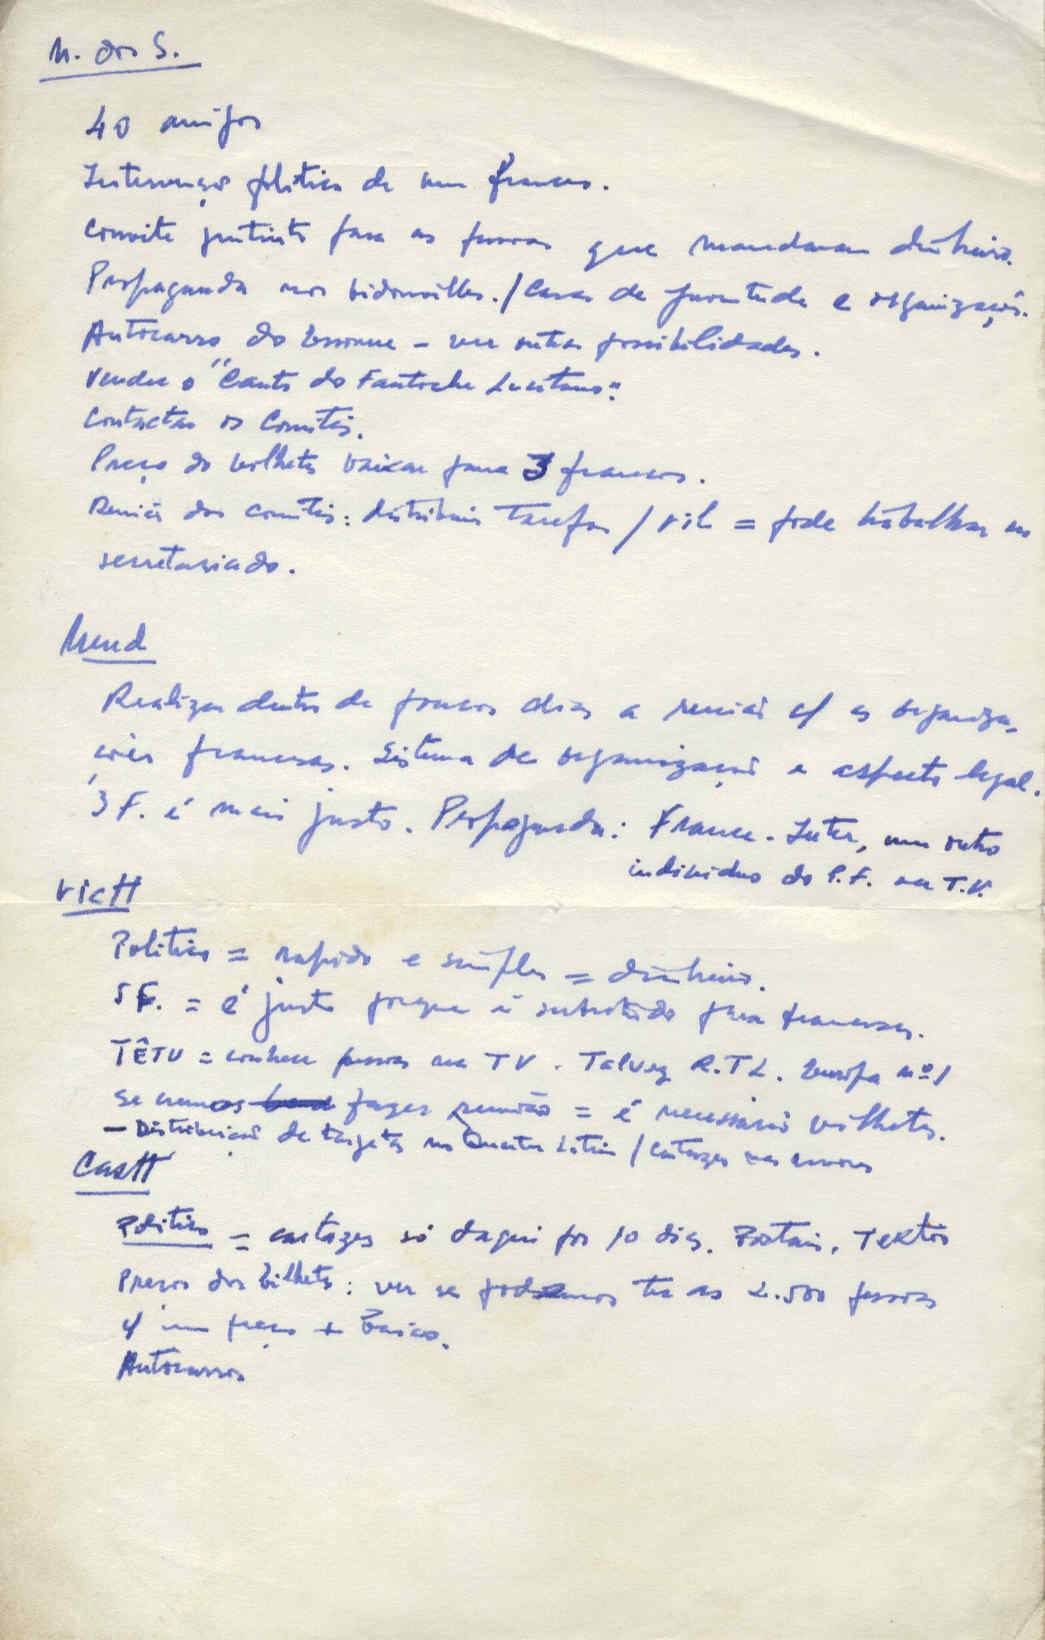 M. dos S.
40 amigos
Intervenção política de um francês.
Convite gratuito para as pessoas que mandaram dinheiro.
Propaganda nos bidonvilles. / Casas de Juventude e organizações.
Autocarro do Essonne – ver outras possibilidades.
Vender o "Canto do Fantoche Lusitano".
Contactar os Comités.
Preço do bilhete baixar para 3 francos.
Reunião dos comités: distribuir tarefas / = pode trabalhar no
secretariado.
Mend
Realizar dentro de poucos dias a reunião c/ as organiza-
ções francesas. Sistema de organização e aspecto legal.
3 F. é mais justo. Propaganda: France-Inter, um outro
indivíduo do P.F. na T.V.
VicH
Politico = rapido e simples = dinheiro.
5 F. = é justo porque é sobretudo para franceses.
TÊTU = conhece pessoas na TV. Talvez R.T.L. Europa nº 1
Se vamos fazer reunião = é necessário bilhetes.
– Distribuição de targetas no Quartier Latin / Cartazes nas
CastH
Politico = cartazes só daqui por 10 dias. Postais, Textos
Preços dos bilhetes: ver se podemos ter as 2.500 pessoas
c/ um preço + baixo.
Autocarros